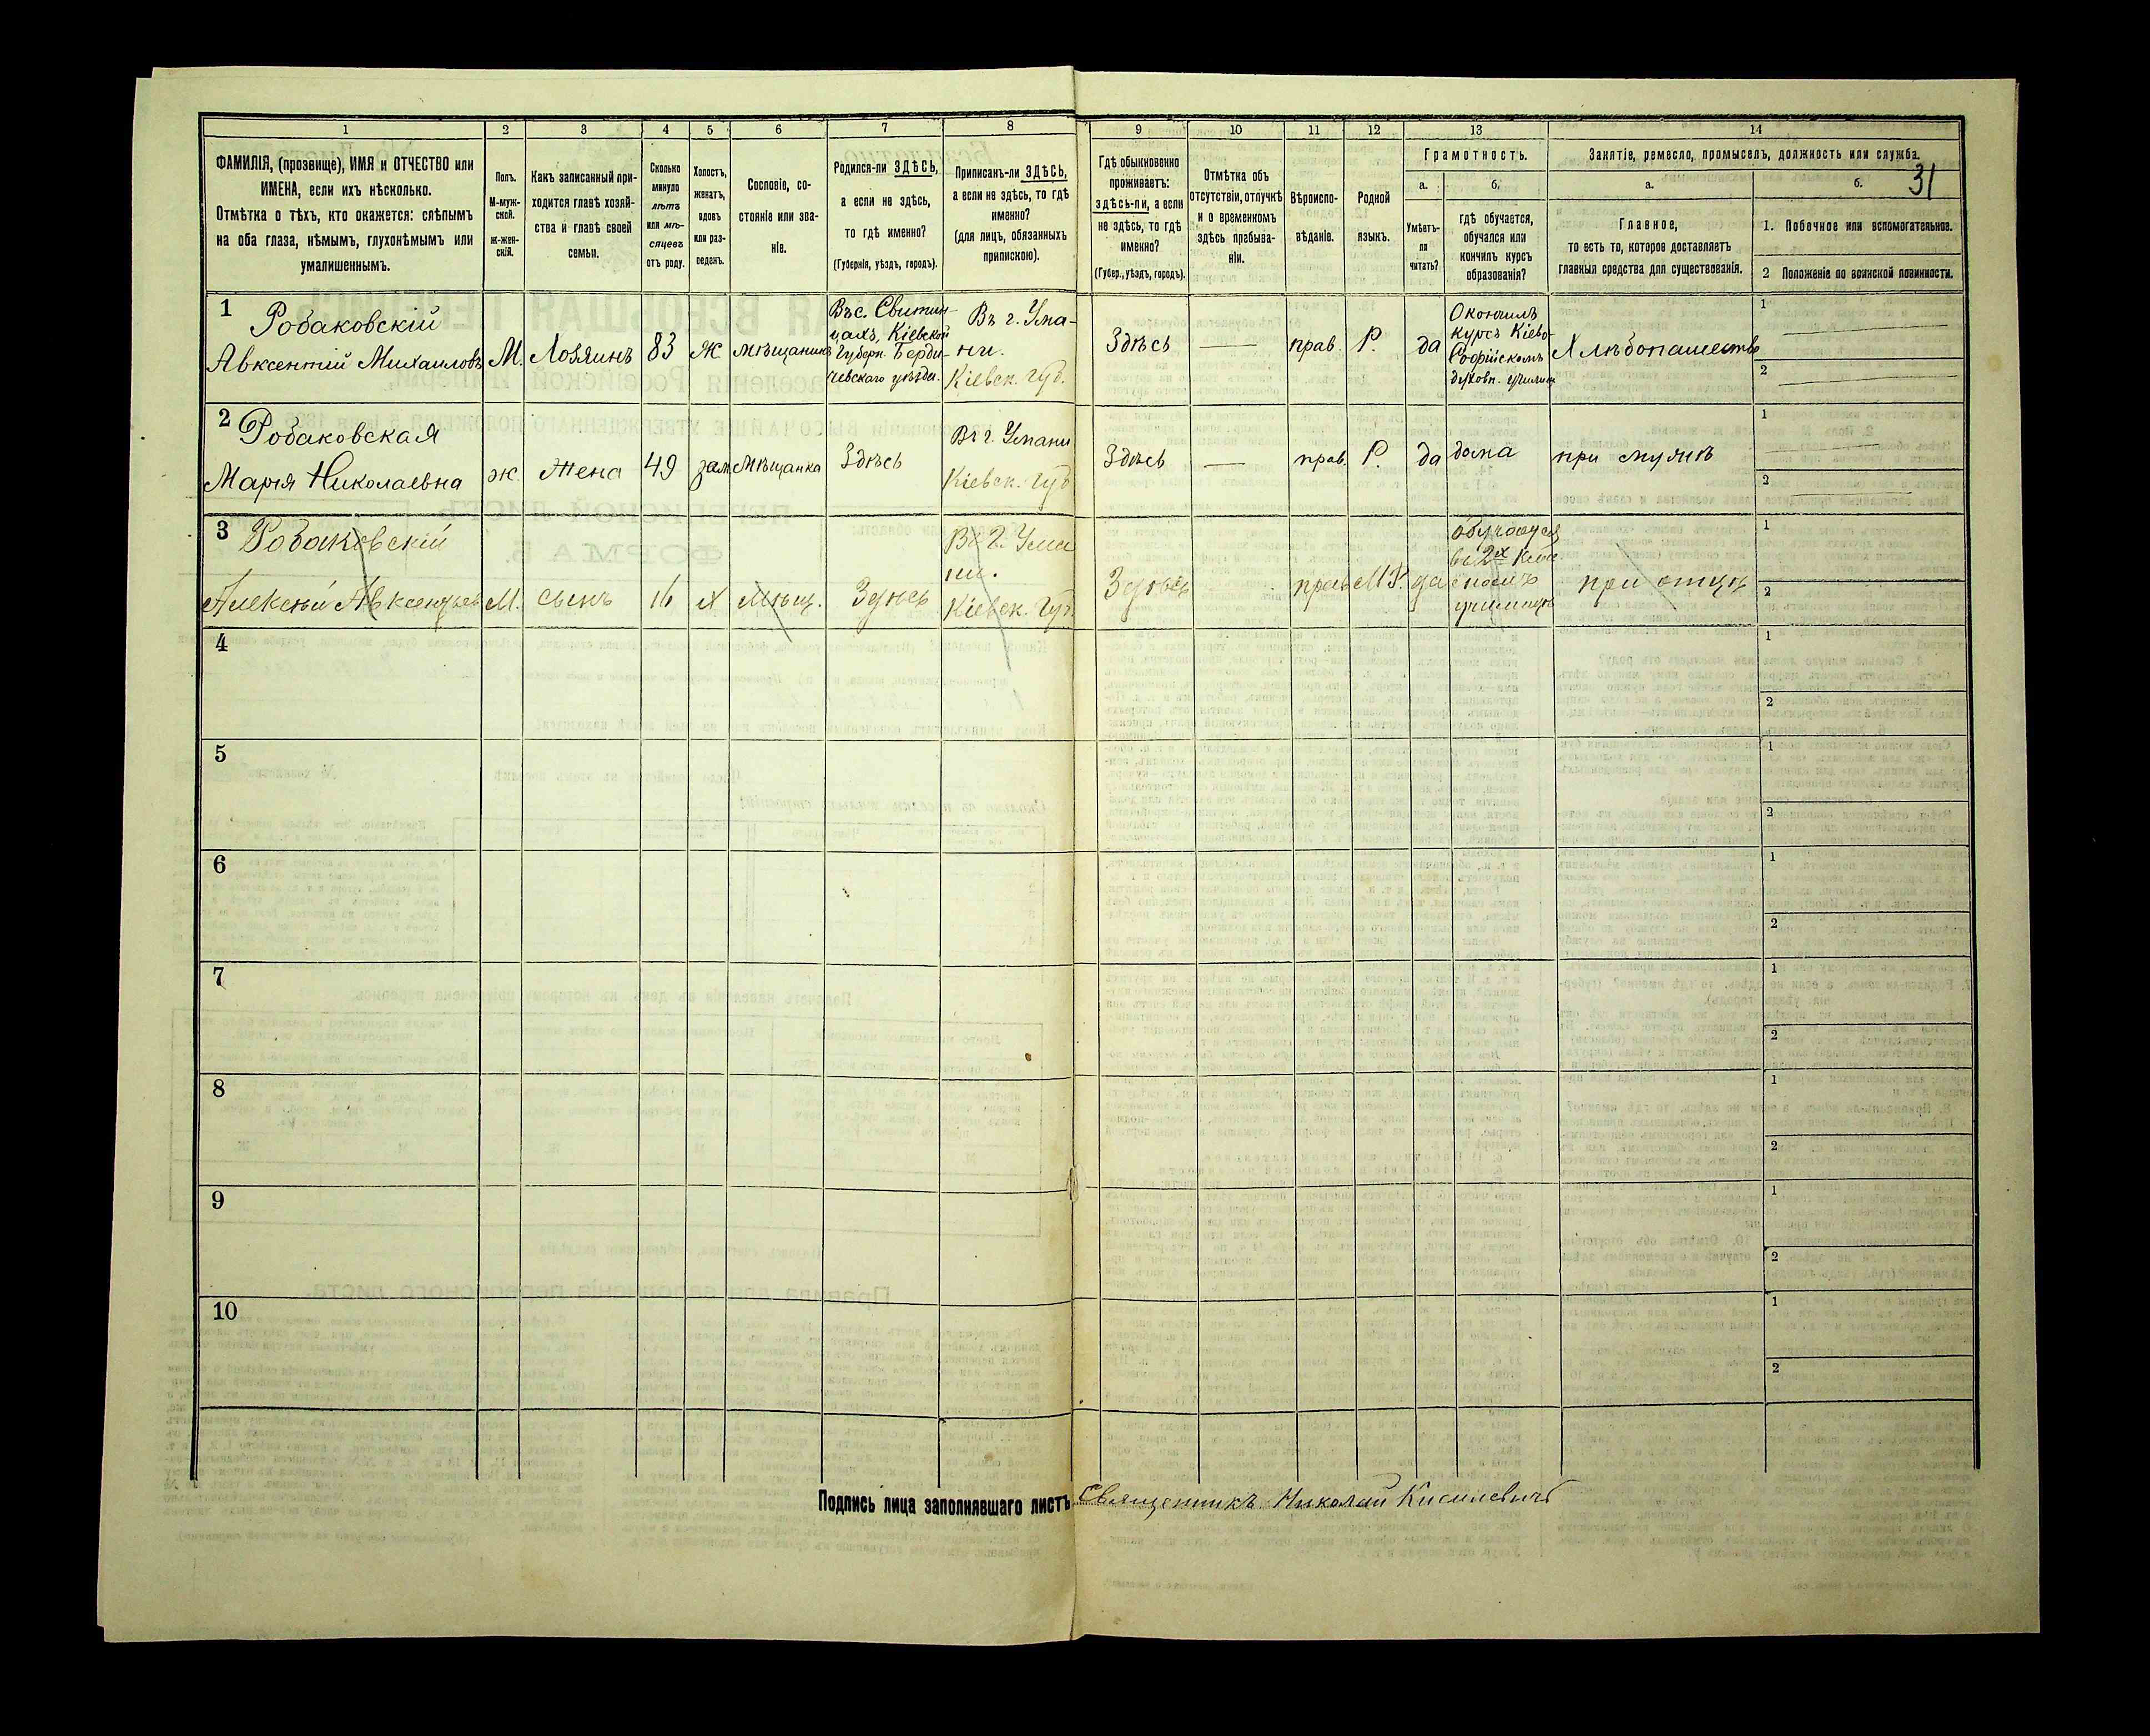 1 2 3 4 5 6 7 8 9 10 11 12 13 14
31
ФАМИЛІЯ, (прозвище), ИМЯ и ОТЧЕСТВО или
ИМЕНА, если ихъ нѣсколько.
Отмѣтка о тѣхъ, кто окажется: слѣпымъ
на оба глаза, нѣмымъ, глухонѣмымъ или
умалишеннымъ.
Полъ.
М-муж-
ской.
ж-жен-
скій.
Какъ записанный при-
ходится главѣ хозяй-
ства и главѣ своей
семьи.
Сколько
минуло
лѣтъ
или мѣ-
сяцевъ
отъ роду.
Холостъ,
женатъ,
вдовъ
или раз-
веденъ.
Сословіе, со-
стояніе или зва-
ніе.
Родился-ли ЗДѢСЬ,
а если не здѣсь,
то гдѣ именно?
(Губернія, уѣздъ, городъ).
Приписанъ-ли ЗДѢСЬ,
а если не здѣсь, то гдѣ
именно?
(для лицъ, обязанныхъ
припискою).
Гдѣ обыкновенно
проживаетъ:
здѣсь-ли, а если
не здѣсь, то гдѣ
именно?
(Губер., уѣздъ, городъ).
Отмѣтка объ
отсутствіи, отлучкѣ
и о временномъ
здѣсь пребыва-
ніи.
Вѣроиспо-
вѣданіе.
Родной
языкъ.
Грамотность.
а.
Умѣетъ-
ли
читать?
б.
гдѣ обучается,
обучался или
кончилъ курсъ
образованія?
Занятіе, ремесло, промыселъ, должность или служба.
а.
Главное,
то есть то, которое доставляетъ
главныя средства для существованія.
б.
1. Побочное или вспомогательное.
2 Положеніе по воинской повинности.
1
Робаковскій
Авксентій Михаиловъ
М.
Хозяинъ
83
Ж
мѣщанинъ
Въ с. Свитин-
цахъ, Кіевской
Губерн. Берди-
чевскаго уѣзда.
Въ г. Ума-
ни.
Кіевск. Губ.
Здѣсь
прав.
Р.
да
Окончилъ
курсъ Кіево-
Софійскомъ
духовн. училищ
Хлѣбопашество
1
2
2
Робаковская
Марія Николаевна
ж.
жена
49
зам
мѣщанка
Здѣсь
Въ г. Умани
Кіевск. Губ
Здѣсь
прав.
Р.
да
дома
при мужѣ
1
2
3
Робаковскій
Алексѣй Авксентьев
М.
сынъ
16
Х
Мѣщ.
Здѣсь
Въ г. Ума
ни.
Кіевск. Губ.
Здѣсь
прав
М.Р.
да
обучается
училищѣ
при отцѣ
1
2
4
1
2
5
1
2
6
1
2
7
1
2
8
1
2
9
1
2
10
1
2
Подпись лица заполнявшаго листъ Священникъ Николай Кисилевичъ